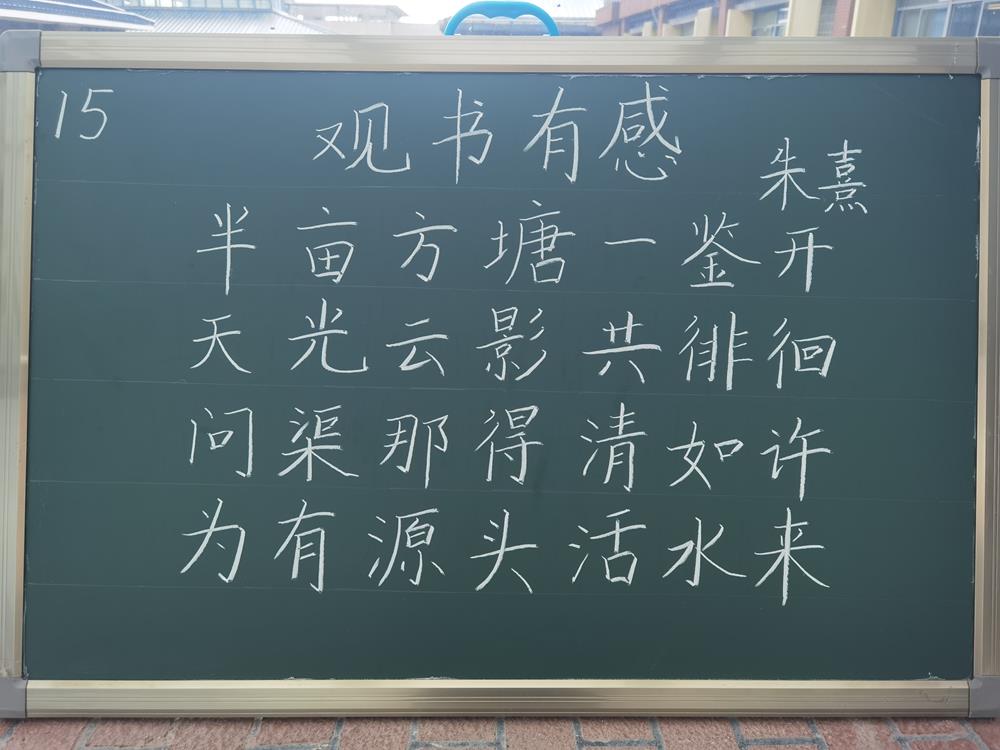 15
观书有感
朱熹
半亩方塘一鉴开
天光云影共徘徊
问渠那得清如许
为有源头活水来